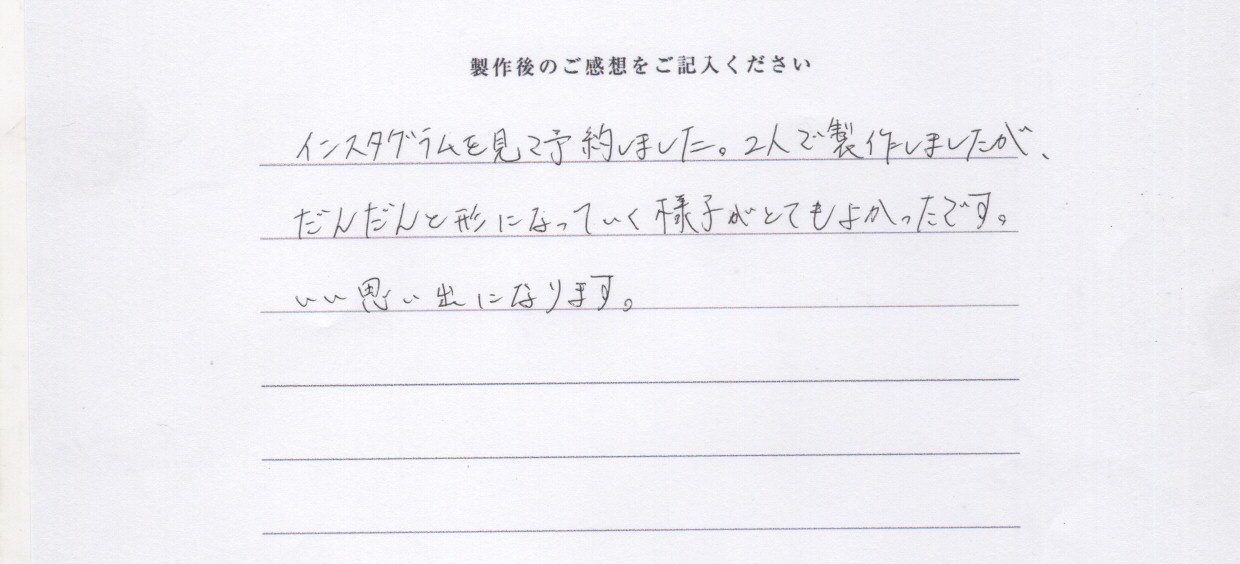 製作後のご感想をご記入ください
インスタグラムを見て予約しました。2人で製作しましたが、
だんだんと形になっていく様子がとてもよかったです。
いい思い出になります。